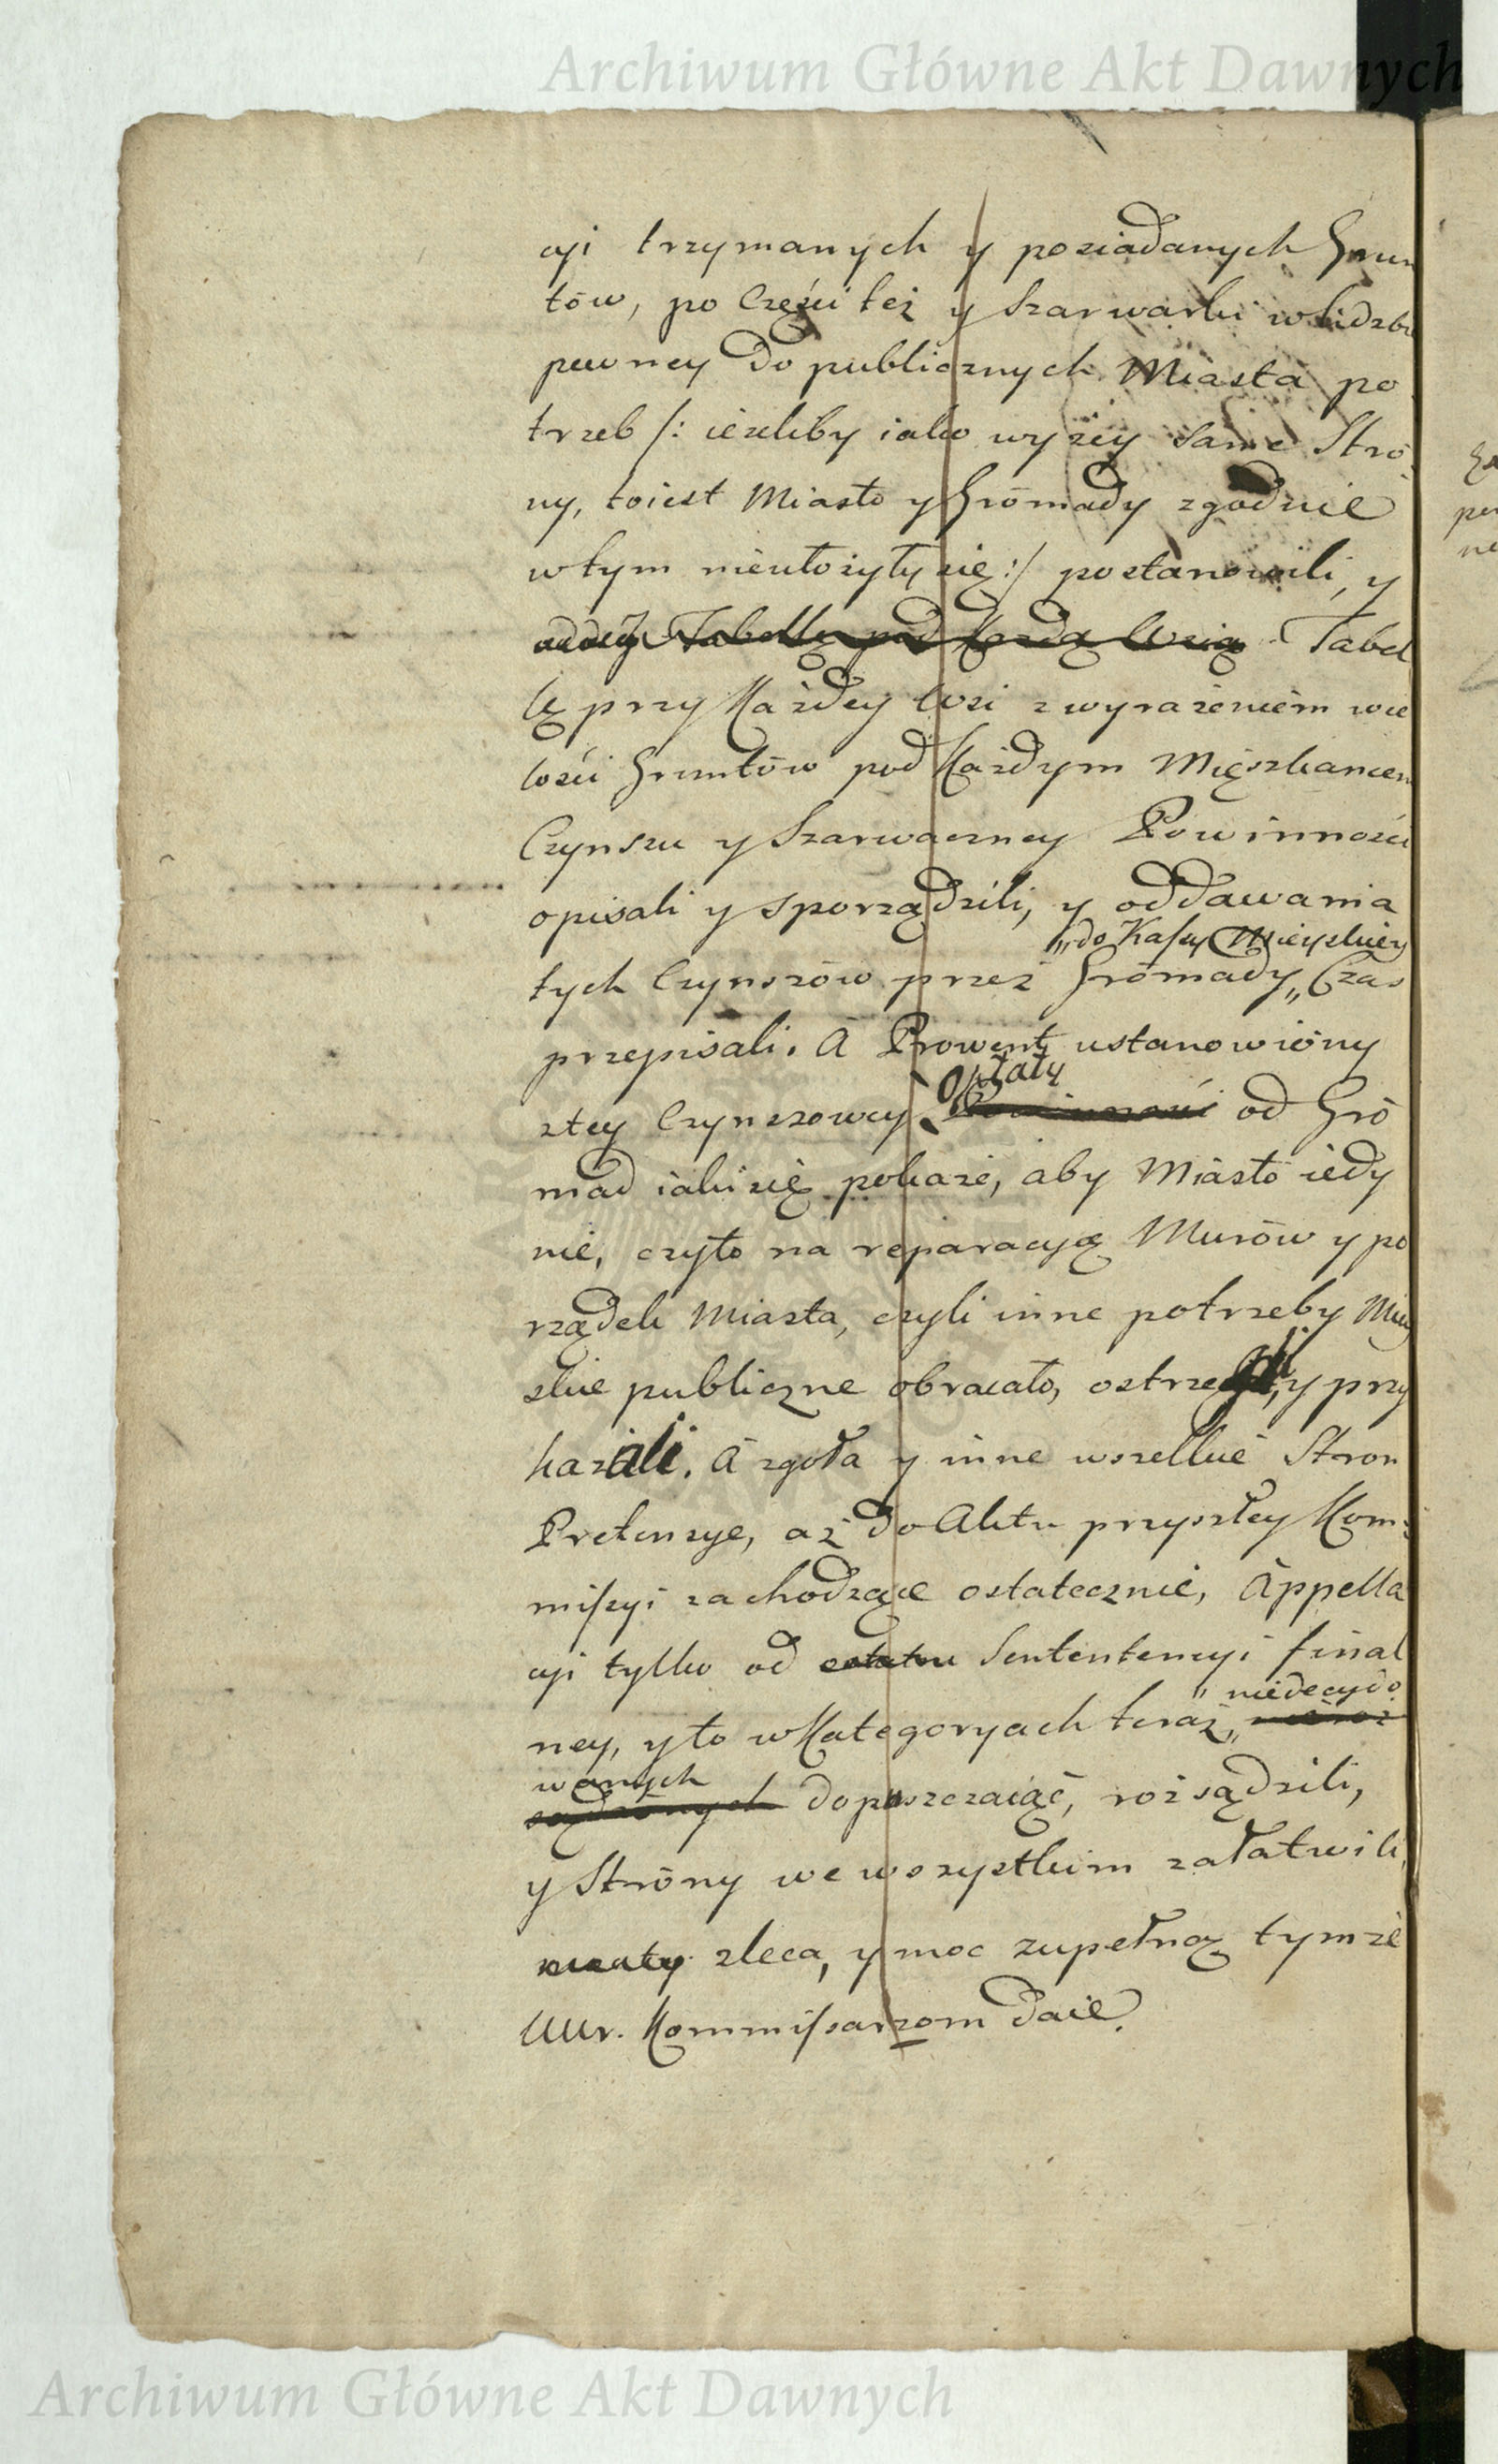 Archiwum Główne Akt Dawnych
cyi trzymanych y posiadanych Grun
tów, po Części też y Szarwarki w liczbie
pewney do publicznych Miasta po
trzeb /: ieżeliby iako wyżey same Stró
ny, toiest Miasto y Grómady zgodnie
w tym nieułożyły się :/ postanowili, y
Tabellę pod Każdą Wsią Tabel
lę przy Każdey Wsi z wyrażeniem wie
lości Gruntów pod Każdym Mięszkancem
Czynszu y Szarwaczney Powinności
opisali y sporządzili, y oddawania
„do Kassy Mieyskiey
tych Czynszów przez Grómady „ Czas
przepisali. A Prowent ustanowiony
Opłaty
ztey Czynszowey Powinności od Gró
mad iaki się pokaże, aby Miasto iedy
nie, czyto na reparacyą Murów y po
rządek Miasta, czyli inne potrzeby Miey
skie publiczne obracało, ostrzegli, y przy
kazali. A zgoła y inne wszelkie Stron
Pretensye, aż do Aktu przyszłey Kom-
missyi zachodzące ostatecznie, Appella
cyi tylko od Sententencyi final
„ niedecydo
ney, y to w Kategoryach teraz „
wanych
sądzonych dopuszczaiąc, rozsądzili,
y Stróny we wszystkim załatwili,
zleca, y moc zupełną tymże
UUr. Kommissarzom daie.
Archiwum Główne Akt Dawnych